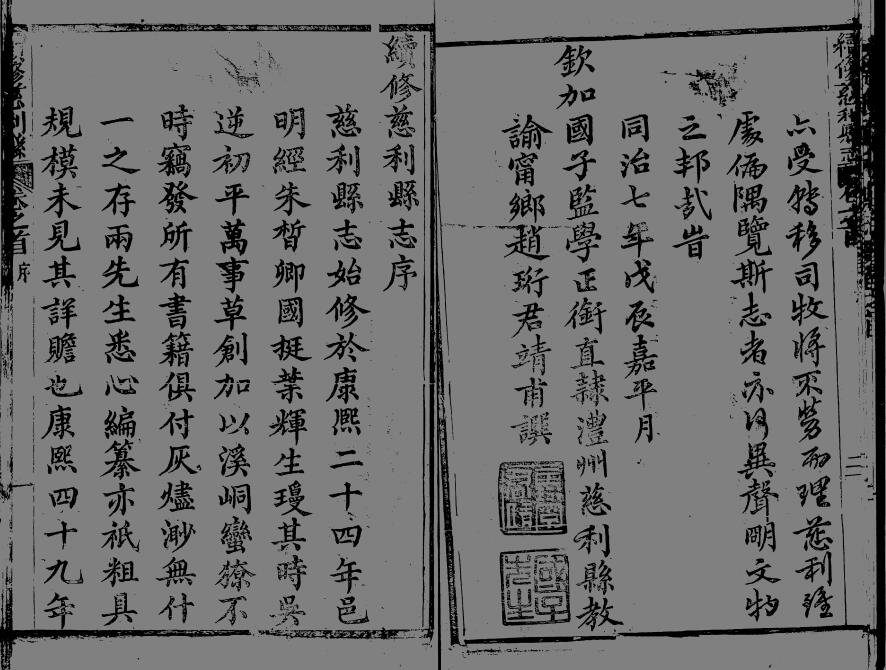 六受鞾移司牧將不勞而理慈利雖
處偏隅覽斯志者亦何異聲明文物
之邦哉旹
同治七年戊辰嘉平月
欽加國子監學正銜直隸澧州慈利縣教
諭甯鄉趙珩君靖甫譔
續修慈利縣志序
慈利縣志始修於康熙二十四年邑
明經朱晳卿國挺葉輝生瓊其時吳
逆初平萬事草創加以溪峒蠻獠不
時竊發所有書籍俱付灰燼渺無什
一之存兩先生悉心編纂亦祇粗具
規模未見其詳贍也康熙四十九年